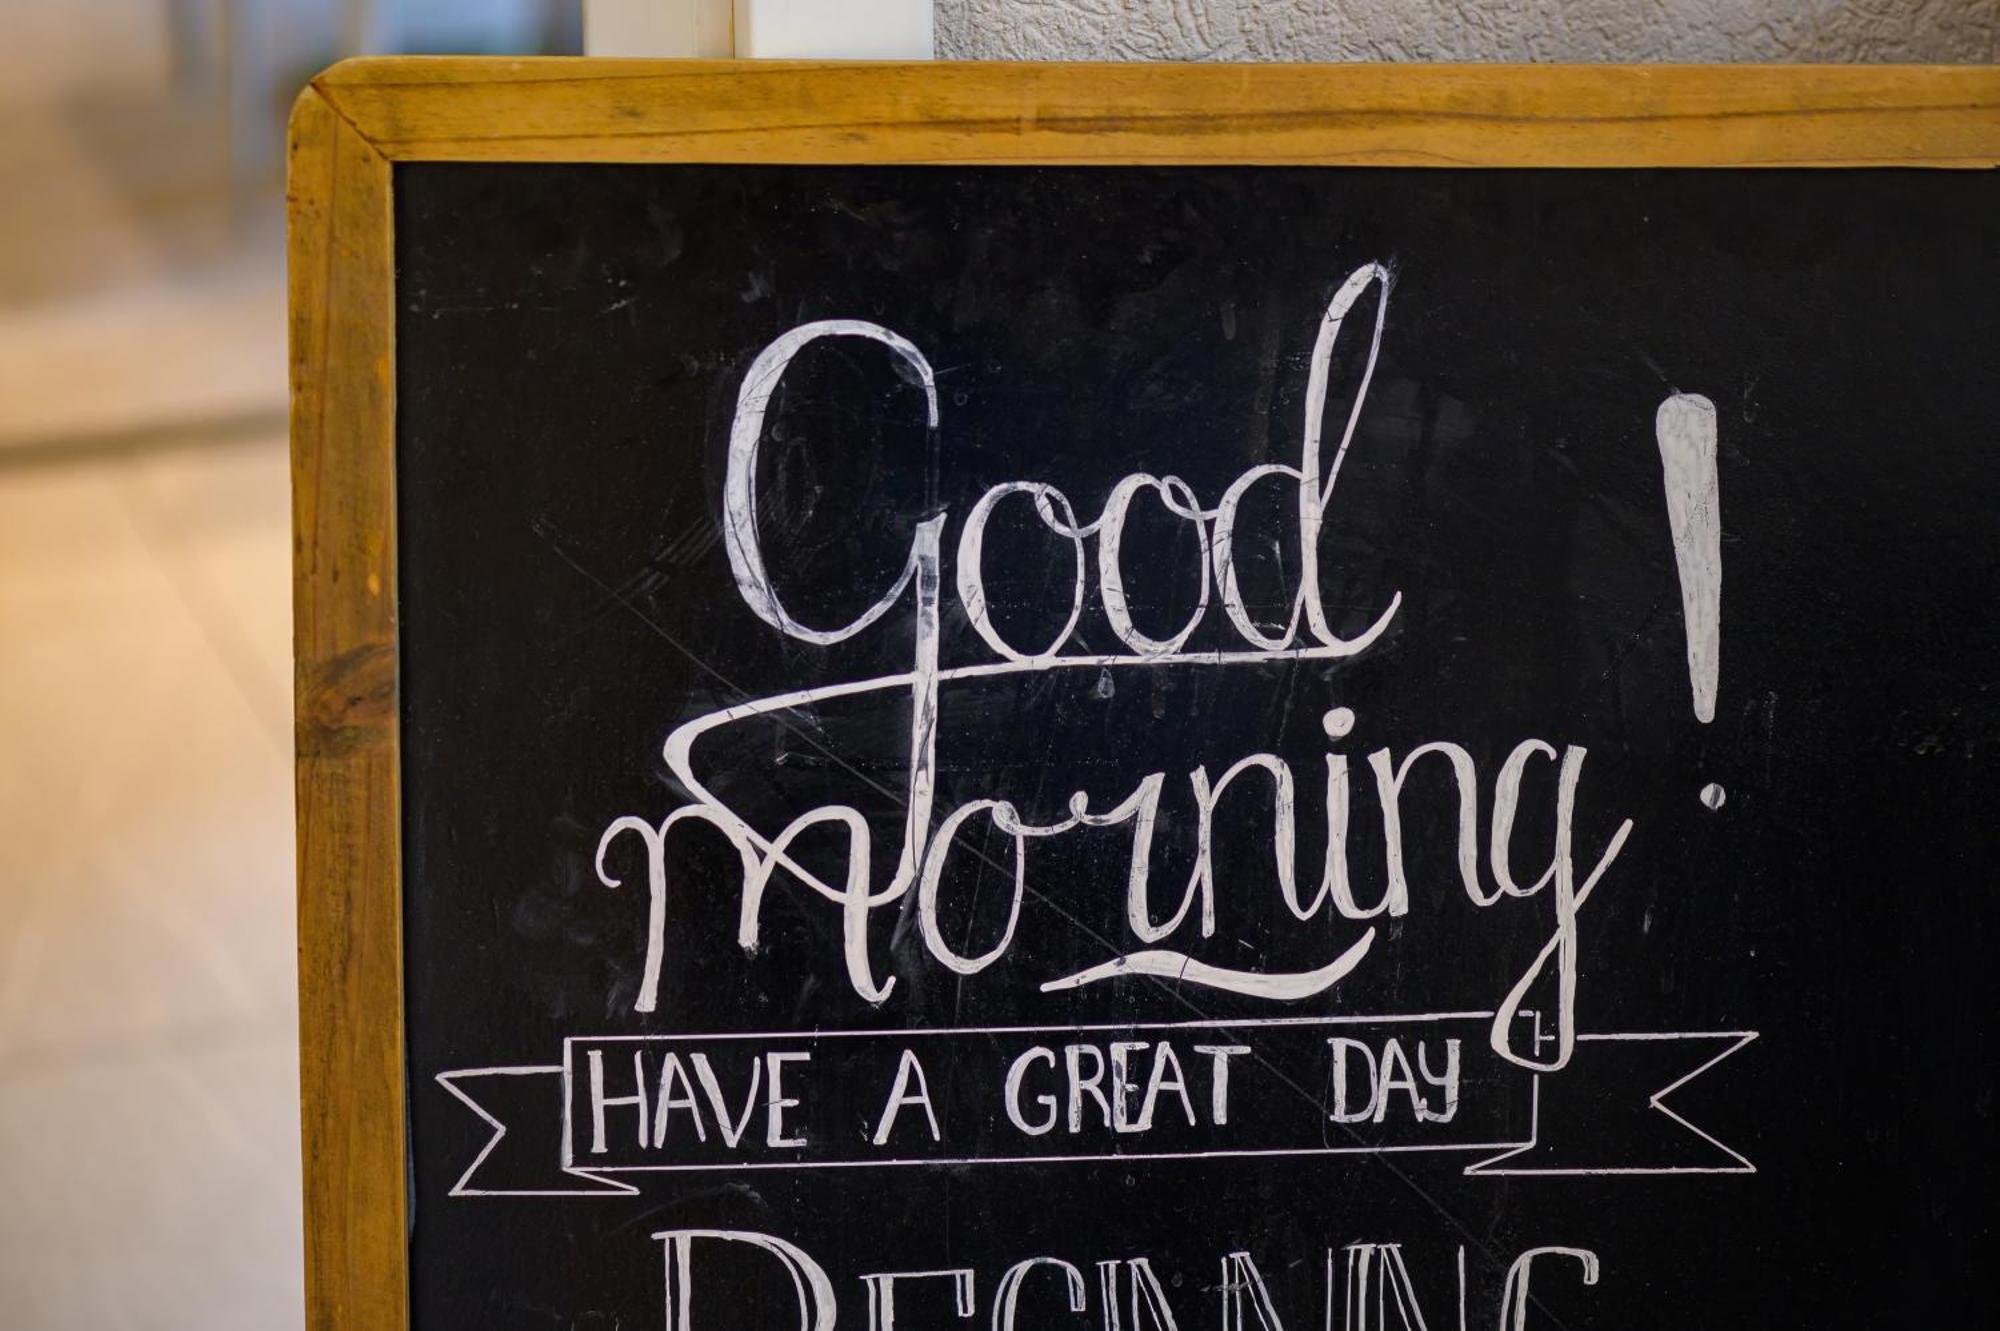 Good
morning!
HAVE A GREAT DAY